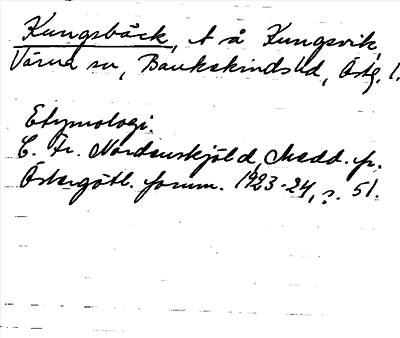 Kungsbäck, t å Kungsvik,
Värna sn, Bankekinds hd, Östg. l.
Etymologi.
C. Fr. Nordenskjöld, Medd. fr.
Östergötl. fornm. 1923-24, s. 51.